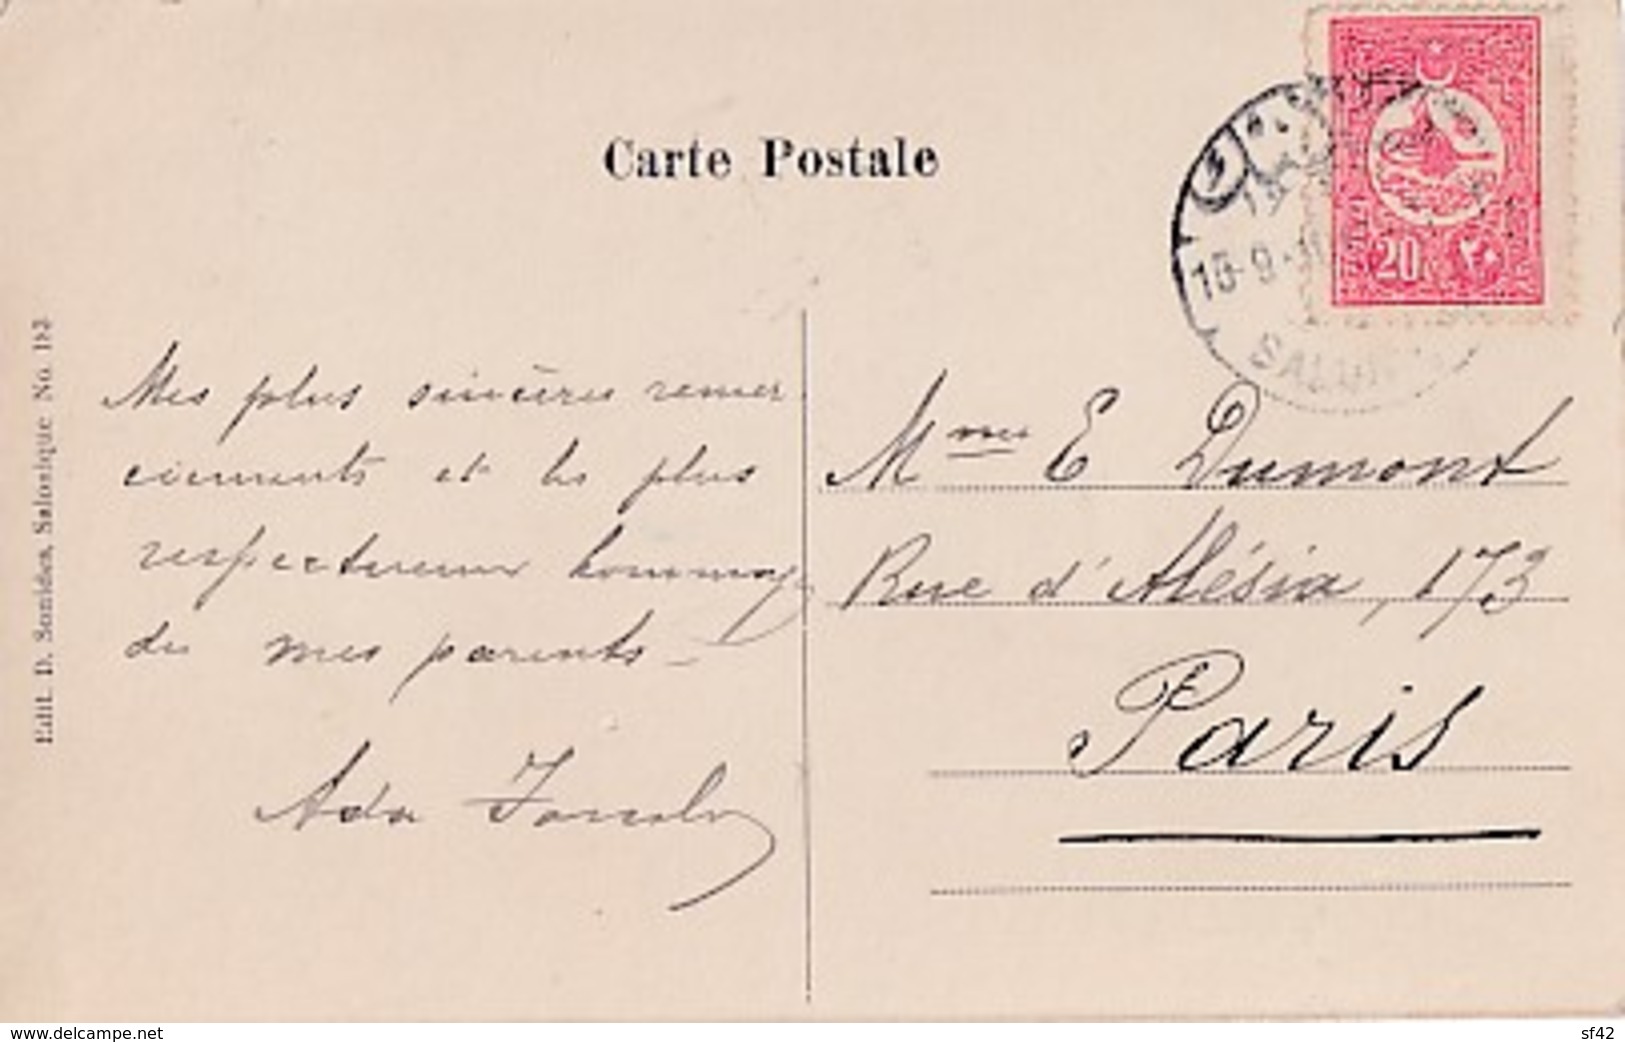 Carte Postale
20
٢٠
SALON
Edit. D. Sonides, Salonique No. 182
Mes plus sincères remer
ciements et les plus
respectueux hommages
de mes parents
Ada
Mme E Dumont
Rue d'Alésia, 173
Paris
www.delcampe.net
sf42